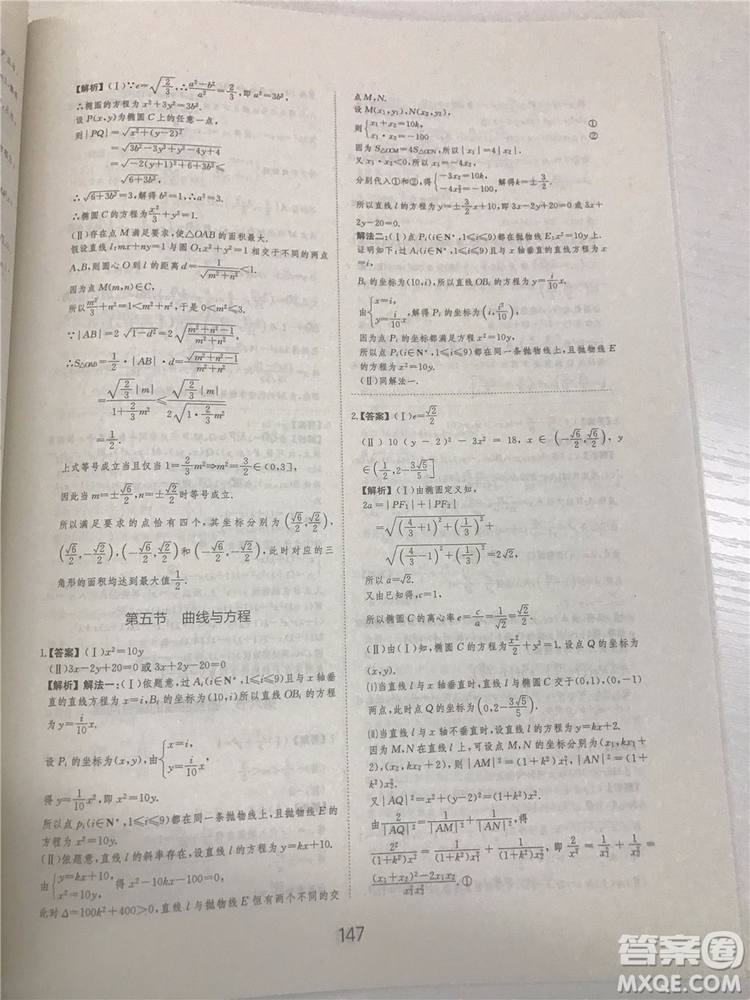 【解析】(Ⅰ)∵e=√(2/3),∴(a²-b²)/a²=2/3,即a²=3b².
∴椭圆的方程为x²+3y²=3b².
设P(x,y)为椭圆C上的任意一点,
则|PQ|=√(x²+(y-2)²)
=√(3b²-3y²+y²-4y+4)
=√(-2(y+1)²+6+3b²)≤
√(6+3b²),
∴√(6+3b²)=3,解得b²=1.
∴椭圆C的方程为x²/3+y²=1.
(Ⅱ)存在点M满足要求,使△OAB的面积最大.
假设直线l:mx+ny=1与圆O:x²+y²=1相交于不同的两点
A、B,则圆心O到l的距离d=1/√(m²+n²)<1.
因为点M(m,n)∈C,
所以m²/3+n²=1<m²+n²,于是0<m²≤3.
∵|AB|=2√(1-d²)=2√((m²+n²-1)/(m²+n²))
∴S△OAB=1/2·|AB|·d=√(m²+n²-1)/(m²+n²)
=√(2/3)|m|/(1+2/3m²)≤√(2/3)|m|/(2√(1·2/3m²))
=1/2.
上式等号成立当且仅当1=2/3m²⇒m²=3/2∈(0,3],
因此当m=±√6/2,n=±√2/2时等号成立.
所以满足要求的点恰有四个,其坐标分别为(√6/2,√2/2),
(√6/2,-√2/2),(-√6/2,√2/2)和(-√6/2,-√2/2),此时对应的三
角形的面积均达到最大值1/2.
第五节 曲线与方程
1.【答案】(Ⅰ)x²=10y
(Ⅱ)3x-2y+20=0或3x+2y-20=0
【解析】解法一:(Ⅰ)依题意,过Aᵢ(i∈N*,1≤i≤9)且与x轴垂
直的直线方程为x=i,Bᵢ的坐标为(10,i)所以直线OBᵢ的方程
为y=i/10x.
设Pᵢ的坐标为(x,y),由{x=i, y=i/10x,
得y=1/10x²,即x²=10y.
所以点pᵢ(i∈N*,1≤i≤9)都在同一抛物线上,且抛物线E的
方程为x²=10y.
(Ⅱ)依题意,直线l的斜率存在,设直线l的方程为y=kx+10,
由{y=kx+10, x²=10y, 得x²-10kx-100=0,
此时Δ=100k²+400>0,直线l与抛物线E恒有两个不同的交
点M,N.
设M(x₁,y₁),N(x₂,y₂),
则{x₁+x₂=10k, ① x₁·x₂=-100 ②
因为S△OCM=4S△OCN,所以|x₁|=4|x₂|.
又x₁·x₂<0,所以x₁=-4x₂,
分别代入①和②,得{-3x₂=10k, -4x₂²=-100, 解得k=±3/2.
所以直线l的方程为y=±3/2x+10,即3x-2y+20=0或3x+
2y-20=0.
解法二:(Ⅰ)点Pᵢ(i∈N*,1≤i≤9)都在抛物线E:x²=10y上.
证明如下:过Aᵢ(i∈N*,1≤i≤9)且与x轴垂直的直线方程为x
=i,
Bᵢ的坐标为(10,i),所以直线OBᵢ的方程为y=i/10x,
由{x=i, y=i/10x, 解得Pᵢ的坐标为(i,i²/10),
因为点Pᵢ的坐标都满足方程x²=10y.
所以点Pᵢ(i∈N*,1≤i≤9)都在同一条抛物线上,且抛物线E
的方程为x²=10y.
(Ⅱ)同解法一.
2.【答案】(Ⅰ)e=√2/2
(Ⅱ)10(y-2)²-3x²=18,x∈(-√6/2,√6/2),y
∈(1/2,2-3√5/5]
【解析】(Ⅰ)由椭圆定义知,
2a=|PF₁|+|PF₂|
=√((4/3+1)²+(1/3)²)+
√((4/3-1)²+(1/3)²)=2√2,
所以a=√2.
又由已知得,c=1,
所以椭圆C的离心率e=c/a=1/√2=√2/2.
(Ⅱ)由(Ⅰ)知,椭圆C的方程为x²/2+y²=1,设点Q的坐标为
(x,y).
(i)当直线l与x轴垂直时,直线l与椭圆C交于(0,1),(0,-1)
两点,此时点Q的坐标为(0,2-3√5/5).
(ii)当直线l与x轴不垂直时,设直线l的方程为y=kx+2.
因为M,N在直线l上,可设点M,N的坐标分别为(x₁,kx₁+
2),(x₂,kx₂+2),则|AM|²=(1+k²)x₁²,|AN|²=(1+
k²)x₂².
又|AQ|²=x²+(y-2)²=(1+k²)x².
由2/|AQ|²=1/|AM|²+1/|AN|²,得
2/((1+k²)x²)=1/((1+k²)x₁²)+1/((1+k²)x₂²),即2/x²=1/x₁²+1/x₂²=
((x₁+x₂)²-2x₁x₂)/(x₁²x₂²).①
147
答案圈
MXQE.COM